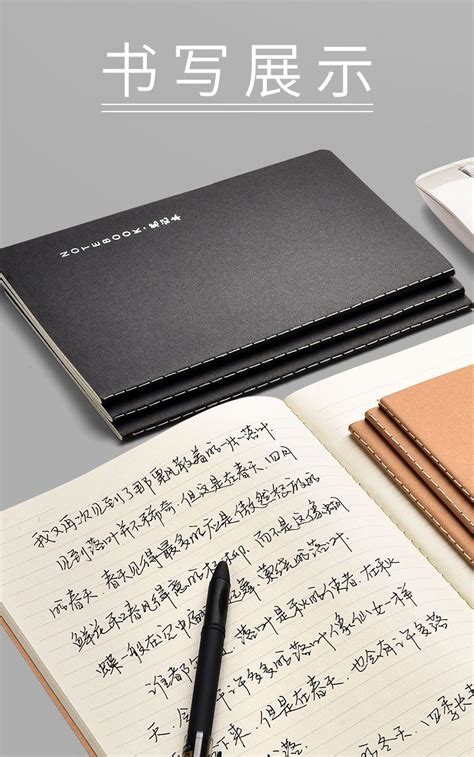 书写展示
NOTEBOOK·笔记本
我又再次见到了那飘散着的一片落叶
见到落叶并不稀奇，但这是在春天，四月
的春天，春天见得最多的应是傲然的
鲜花和春风得意的，而不是这像蝴
蝶一般在空中翩起舞，的落叶
谁都落叶是秋的使者，在秋
天，会许多的落叶像仙女一样
下来，但是在春天，也会有许多落
落的冬天，四季长